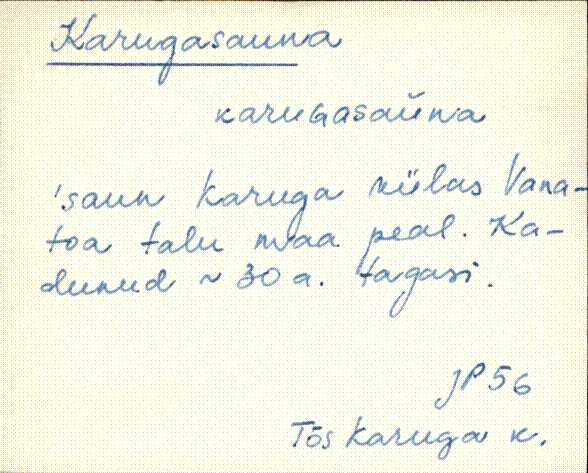 Karugasauna
karuGasaŭna
'saun karuga külas Vana-
toa talu maa peal. Ka-
dunud ~ 30 a. tagasi.
JP 56
Tõs Karuga k.